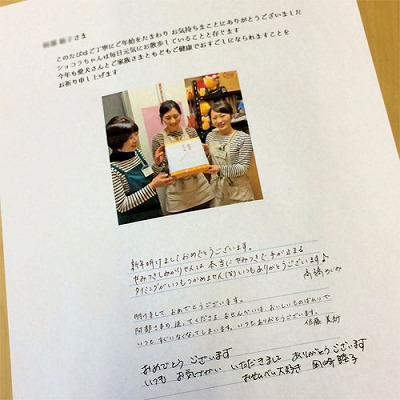 さま
このたびはご丁寧にご年始をたまわり お気持ちまことにありがとうございました
ショコラちゃんは毎日元気にお散歩していることと存じます
今年も愛犬さんとご家族さまともどもご健康でおすごしになられますことを
お祈り申し上げます
新年明けましておめでとうございます。
やみつきしみかりせんは 本当にやみつきで手が止まる
タイミングがいつもつかめません(笑)いつもありがとうございます♪
高橋
明けまして、おめでとうございます。
阿部さまの、送ってくださる おせんべいは、おいしいものばかりで
いつも、すぐになくなってしまいます。いつもありがとうございます。
佐藤
おめでとう ございます
いつも お気づかい いただきまして ありがとうございます
おせんべい大好き 岡崎 睦子